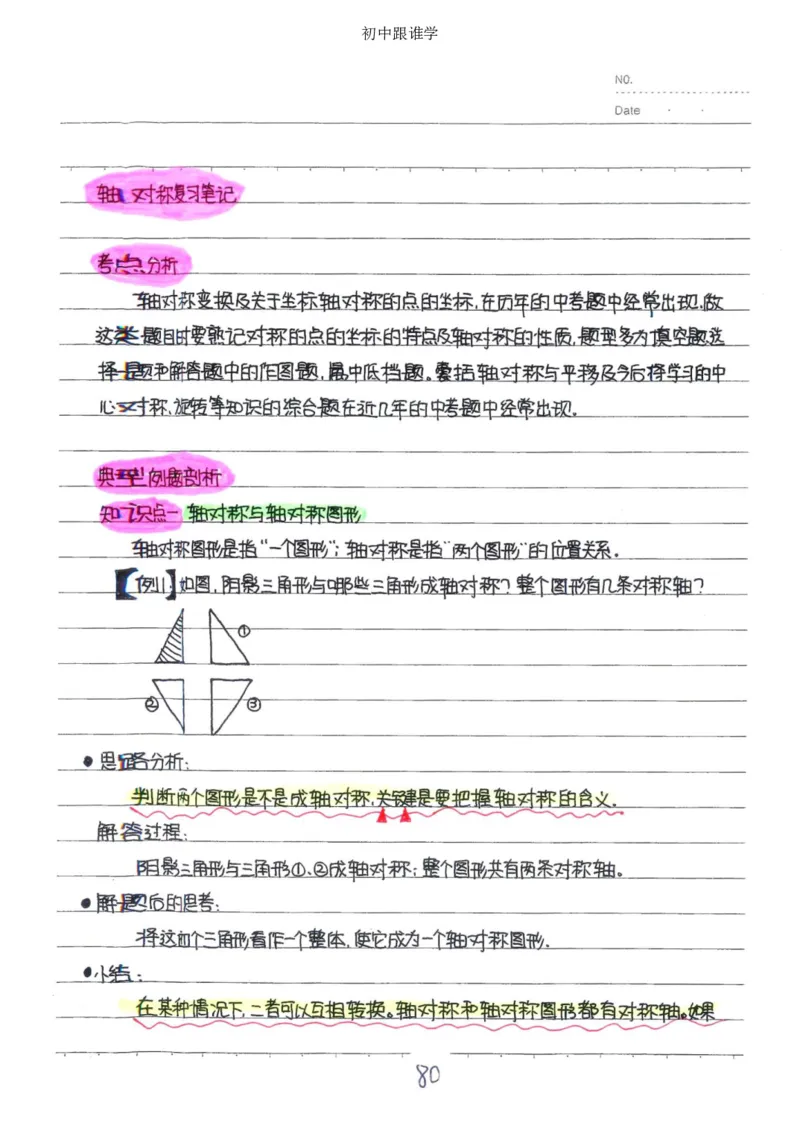 初中跟谁学
NO.
Date
轴对称复习笔记
考点分析
轴对称变换及关于坐标轴对称的点的坐标,在历年的中考题中经常出现,做
这类题目时要熟记对称的点的坐标的特点及轴对称的性质,题型多为填空题选
择题和解答题中的作图题,属中低档题。囊括轴对称与平移及今后将学习的中
心对称、旋转等知识的综合题在近几年的中考题中经常出现。
典型例题剖析
知识点一 轴对称与轴对称图形
轴对称图形是指“一个图形”;轴对称是指“两个图形”的位置关系。
【例1】如图,阴影三角形与哪些三角形成轴对称?整个图形有几条对称轴?
①
② ③
●思路分析:
判断两个图形是不是成轴对称,关键是要把握轴对称的含义.
解答过程:
阴影三角形与三角形①、②成轴对称;整个图形共有两条对称轴。
●解题后的思考:
将这四个三角形看作一个整体,使它成为一个轴对称图形.
●小结:
在某种情况下,二者可以互相转换。轴对称和轴对称图形都有对称轴。如果
80